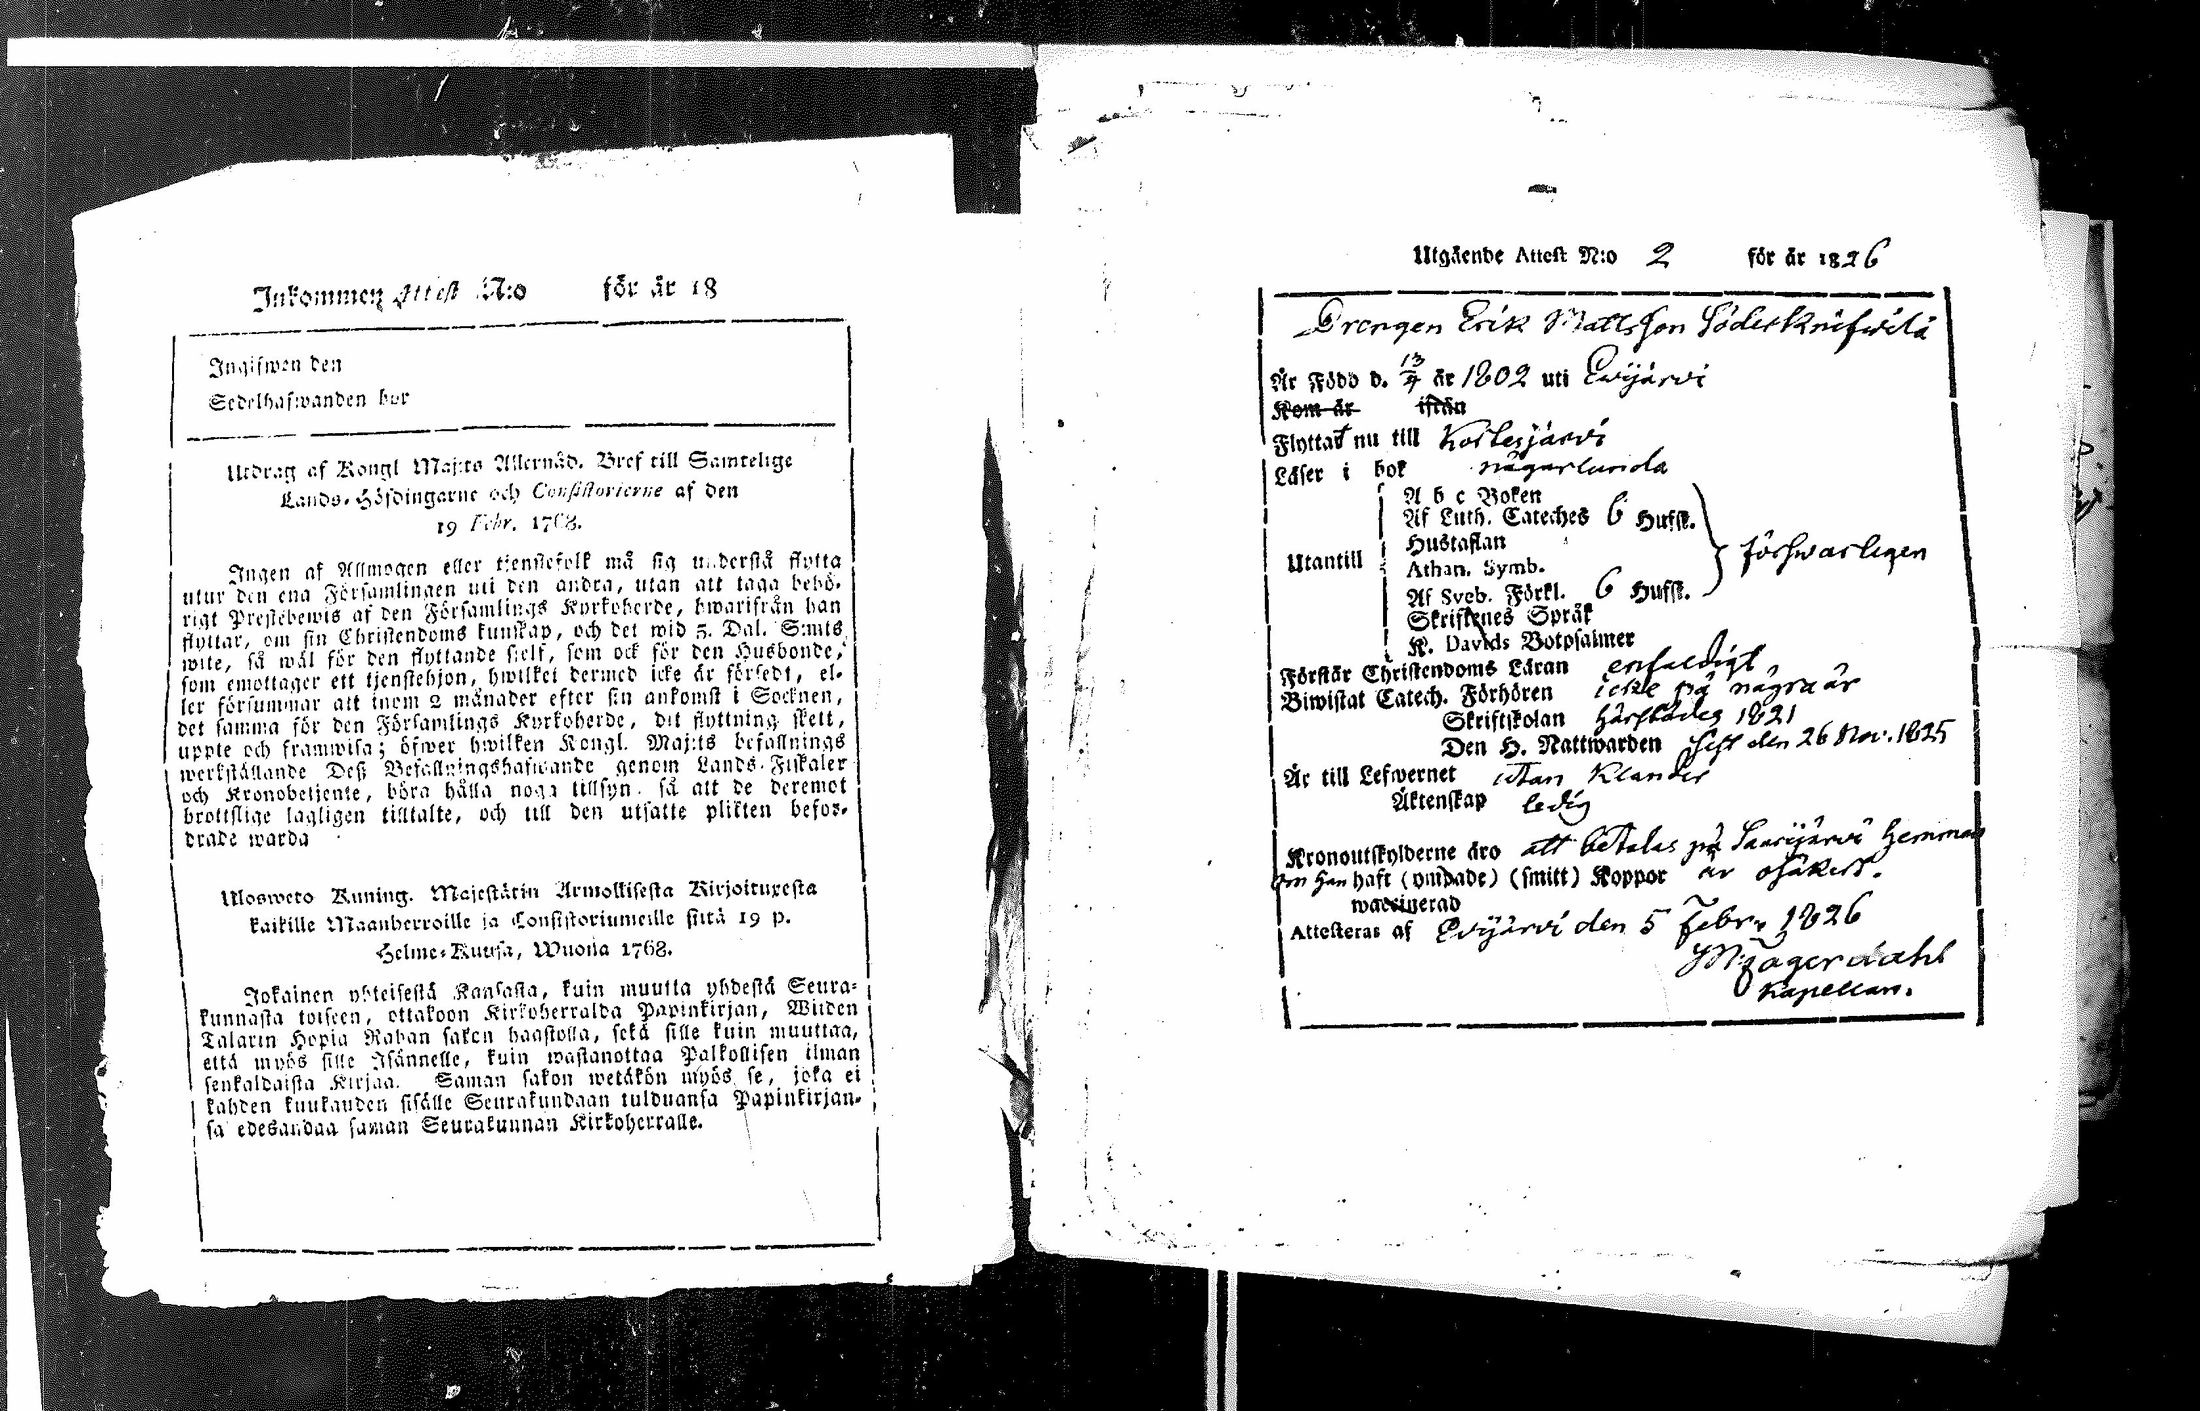 Inkommen Attest N:o för år 18
Ingifwen den
Sedelhafwanden bor
Utdrag af Kongl Maj:ts Allernåd. Bref till Samtelige
Lands-Höfdingarne och Consistorierne af den
19 Febr. 1768.
Ingen af Allmogen eller tjenstefolk må sig understå flytta
utur den ena Församlingen uti den andra, utan att taga behö-
rigt Prestebewis af den Församlings Kyrkoherde, hwarifrån han
flyttar, om sin Christendoms kunskap, och det wid 5. Dal. S:mts
wite, så wäl för den flyttande sielf, som ock för den Husbonde,
som emottager ett tjenstehjon, hwilket dermed icke är försedt, el-
ler försummar att inom 2 månader efter sin ankomst i Socknen,
det samma för den Församlings Kyrkoherde, dit flyttning skett,
uppte och framwisa; öfwer hwilken Kongl. Maj:ts befallnings
werkställande Deß Befallningshafwande genom Lands-Fiskaler
och Kronobetjente, böra hålla noga tillsyn, så att de deremot
brottslige lagligen tilltalte, och till den utsatte plikten befor-
drade warda
Ulosweto Kuning. Majestätin Armollisesta Kirjoituxesta
kaikille Maanherroille ja Consistoriumeille siitä 19 p.
Helme-Kuusa, Wuona 1768.
Jokainen yhteisestä Kansasta, kuin muutta yhdestä Seura-
kunnasta toiseen, ottakoon Kirkoherralda Papinkirjan, Wiiden
Talarin Hopia Rahan sakon haastolla, sekä sille kuin muuttaa,
että myös sille Isännelle, kuin wastanottaa Palkollisen ilman
senkaldaista Kirjaa. Saman sakon wetäkön myös se, joka ei
kahden kuukauden sisälle Seurakundaan tulduansa Papinkirjan-
sa edesandaa saman Seurakunnan Kirkoherralle.
Utgående Attest N:o 2 för år 1826
Drengen Erik Mattsson Söderknifwilä
År Född d. 13/4 år 1802 uti Ewijärwi
Kom år ifrån
Flyttar nu till Kortesjärwi
Läser i bok någorlunda
A b c Boken
Af Luth. Cateches 6 Hufst.
Hustaflan
Utantill Athan. Symb. förswarligen
Af Sveb. Förkl. 6 Hufst.
Skriftenes Språk
K. Davids Botpsalmer
Förstår Christendoms Läran enfaldigt
Biwistat Catech. Förhören icke på några år
Skriftskolan härstädes 1821
Den H. Nattwarden sist den 26 Nov. 1825
Är till Lefwernet utan klander
Äktenskap ledig
Kronoutskylderne äro att betalas på Saarijärwi Hemman
Om han haft (ympade) (smitt) Koppor är osäkert.
waccinerad
Attesteras af Ewijärwi den 5 Febr. 1826
M. Jägerdahl
Kapellan.